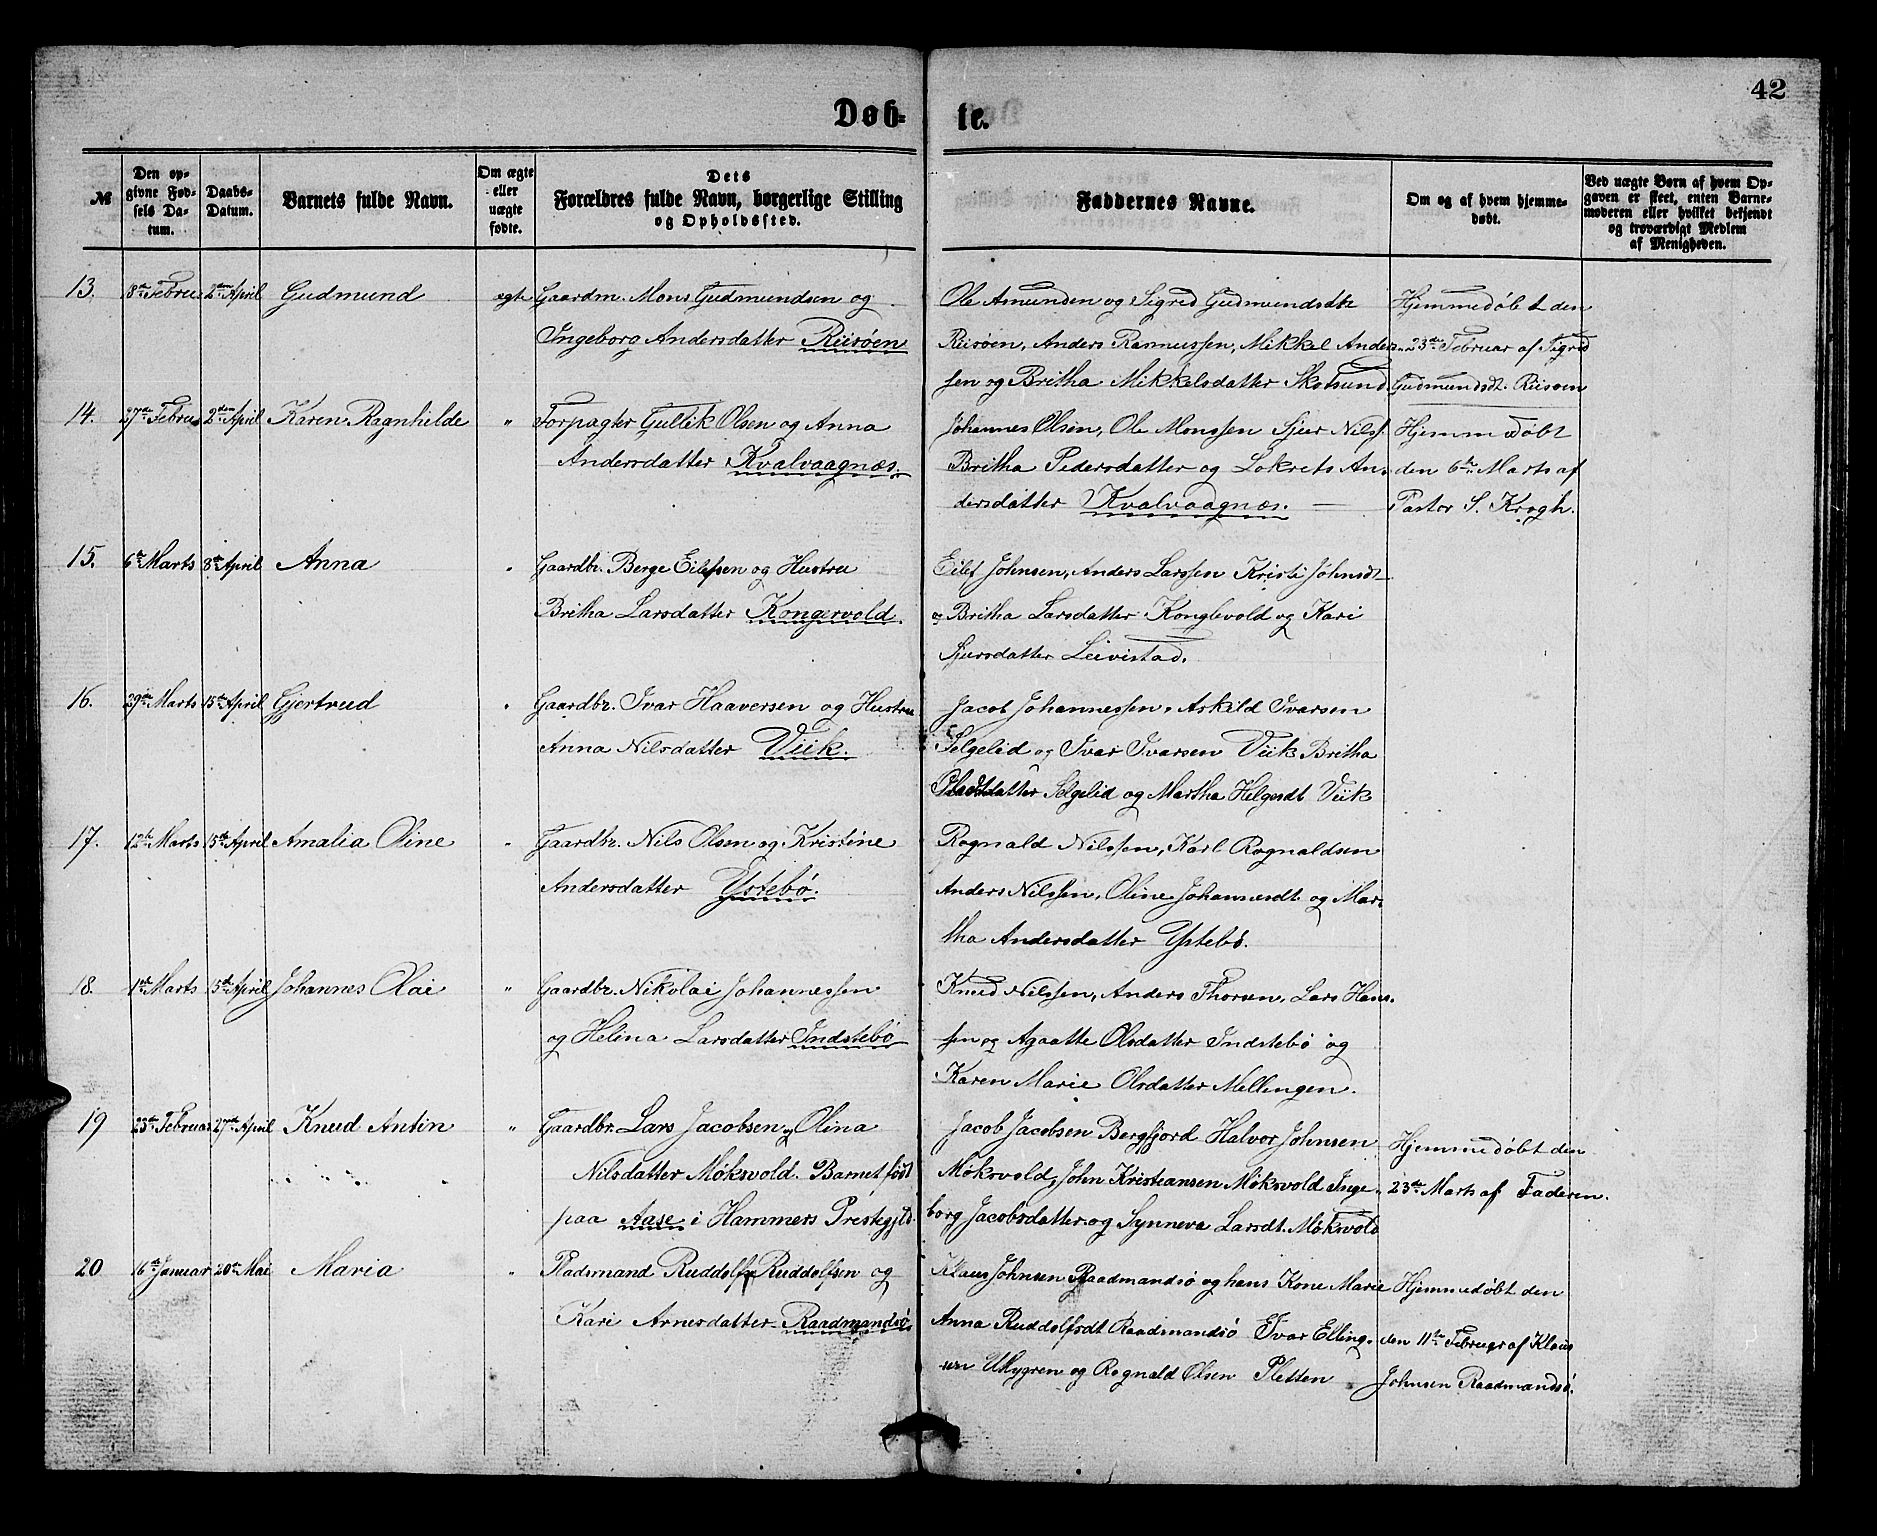 42
Døb- te.
№
Den opgivne Fødsels Datum.
Daabs-Datum.
Barnets fulde Navn.
Om ægte eller uægte fødte.
Dets Forældres fulde Navn, borgerlige Stilling og Opholdssted.
Faddernes Navne.
Om og af hvem hjemmedøbt.
Ved uægte Børn af hvem Opgaven er skeet, enten Barnemoderen eller hvilket bekjendt og troværdigt Medlem af Menigheden.
13. 18de Febru 2den April Gudmund egte Gaardm. Mons Gudmundsen og
Ingeborg Andersdatter Riisøen
Ole Amunden og Sigrid Gudmundsdtr
Riisøen, Anders Rasmussen, Mikkel Anders-
sen og Britha Mikkelsdatter Skotsund
Hjemmedøbt den
23de Februar af Sigrid
Gudmundsdt. Riisøen
14. 27de Febru 2den April Karen Ragnhilde " Forpagter Gullik Olsen og Anna
Andersdatter Kvalvaagnæs.
Johannes Olsen, Ole Monssen Sjur Nilss.
Britha Pedersdatter og Lokrets An-
dersdatter Kvalvaagnæs. —
Hjemmedøbt
den 6te Marts af
Pastor S. Krogh.
15. 6te Marts 8de April Anna " Gaardbr. Berge Eilefsen og Hustru
Britha Larsdatter Kongsvold.
Eilef Johnsen, Anders Larssen Kristi Johnsdt
og Britha Larsdatter Konglevold og Kari
Sjursdatter Leivistad.
16. 29de Marts 15de April Gjertrud " Gaardbr. Ivar Haaversen og Hustru
Anna Nilsdatter Viik.
Jacob Johannessen, Askild Ivarsen
Selgelid og Ivar Ivarsen Viik Britha
Olsdatter Selgelid og Martha Helgesdt Viik
17. 12te Marts 15de April Amalia Oline " Gaardbr. Nils Olsen og Kristine
Andersdatter Ystebø.
Rognald Nilssen, Karl Rognaldsen
Anders Nilssen, Oline Johannesdt og Mar-
tha Andersdatter Ystebø.
18. 1ste Marts 15de April Johannes Olai " Gaardbr. Nikolai Johannessen
og Helina Larsdatter Indstebø
Knud Nilssen, Anders Thorsen, Lars Hans-
sen og Agaatte Olsdatter Indstebø og
Karen Marie Olsdatter Mellingen.
19 23de Februar 27de April Knud Antin " Gaardbr. Lars Jacobsen og Olina
Nilsdatter Møksvold. Barnet født
paa Aase i Hammers Prestegjld.
Jacob Jacobsen Bergfjord Halvor Johnsen
Møksvold, John Kristiansen Møksvold Inge-
borg Jacobsdatter og Synneva Larsdt. Møksvold
Hjemmedøbt den
23de Marts af Faderen.
20 16de Januar 20de Mai Maria " Pladsmand Ruddolf Ruddolfsen og
Kari Arnesdatter Raadmandsø
Klaus Johnsen Raadmandsø og hans Kone Marie
Anna Ruddolfsdt Raadmandsø Ivar Elling-
sen Uthygren og Rognald Olsen Pletten
Hjemmedøbt den
den 11te Februar af Klaus
Johnsen Raadmandsø.